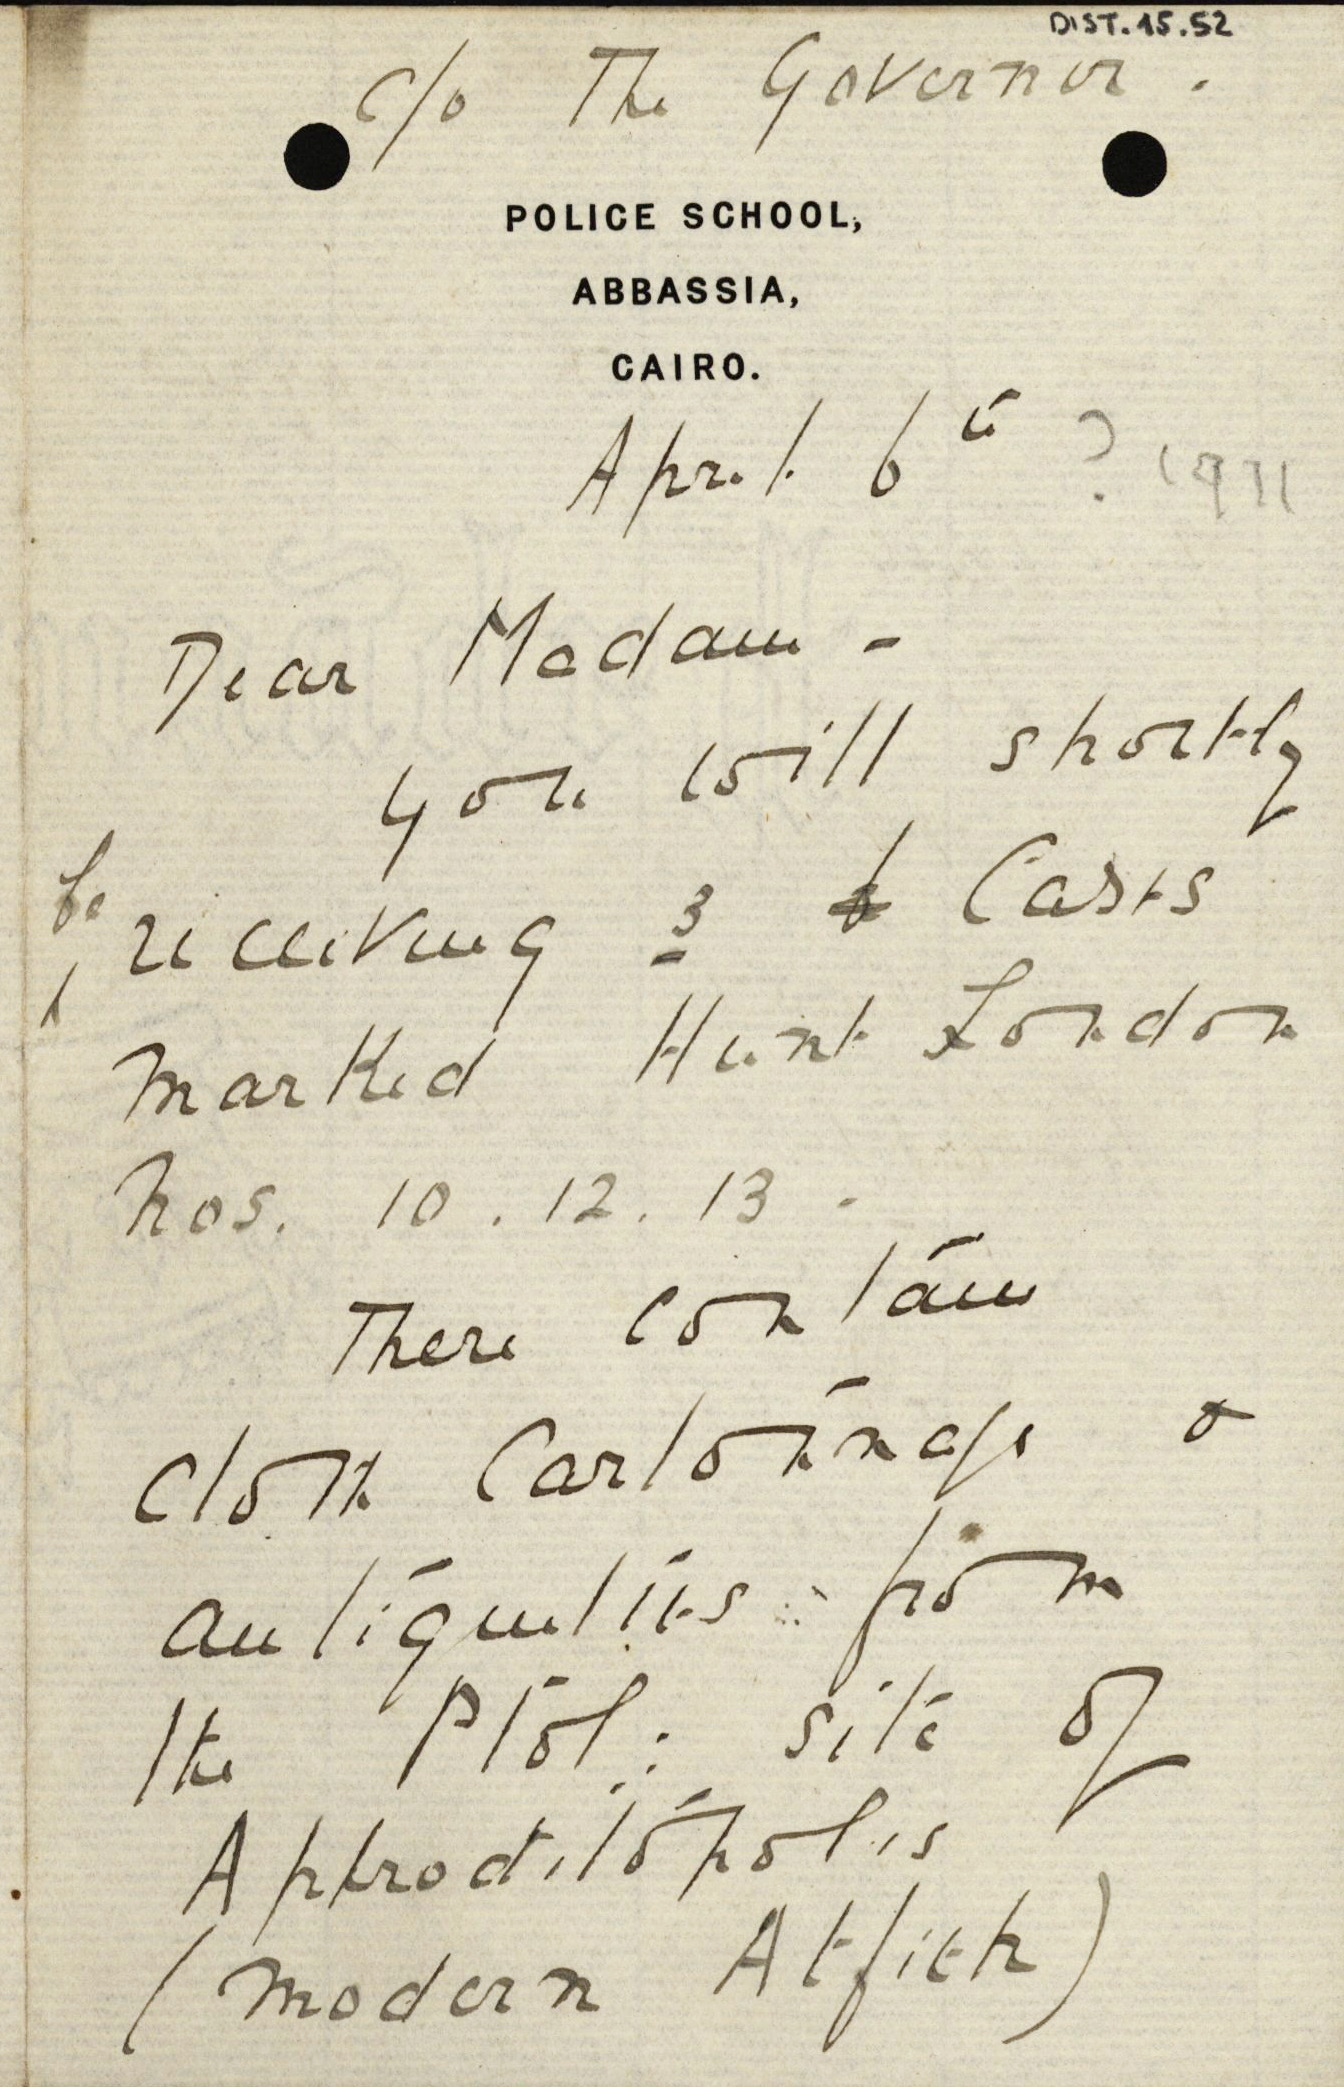 DIST.15.52
c/o The Governor.
POLICE SCHOOL,
ABBASSIA,
CAIRO.
April 6th ? 1911
Dear Madam -
you will shortly
be
receiving 3 6 Cases
marked Hunt London
Nos. 10. 12. 13 -
These contain
cloth Cartonnage &
antiquities: from
the Ptol: site of
Aphroditopolis
(modern Atfieh)